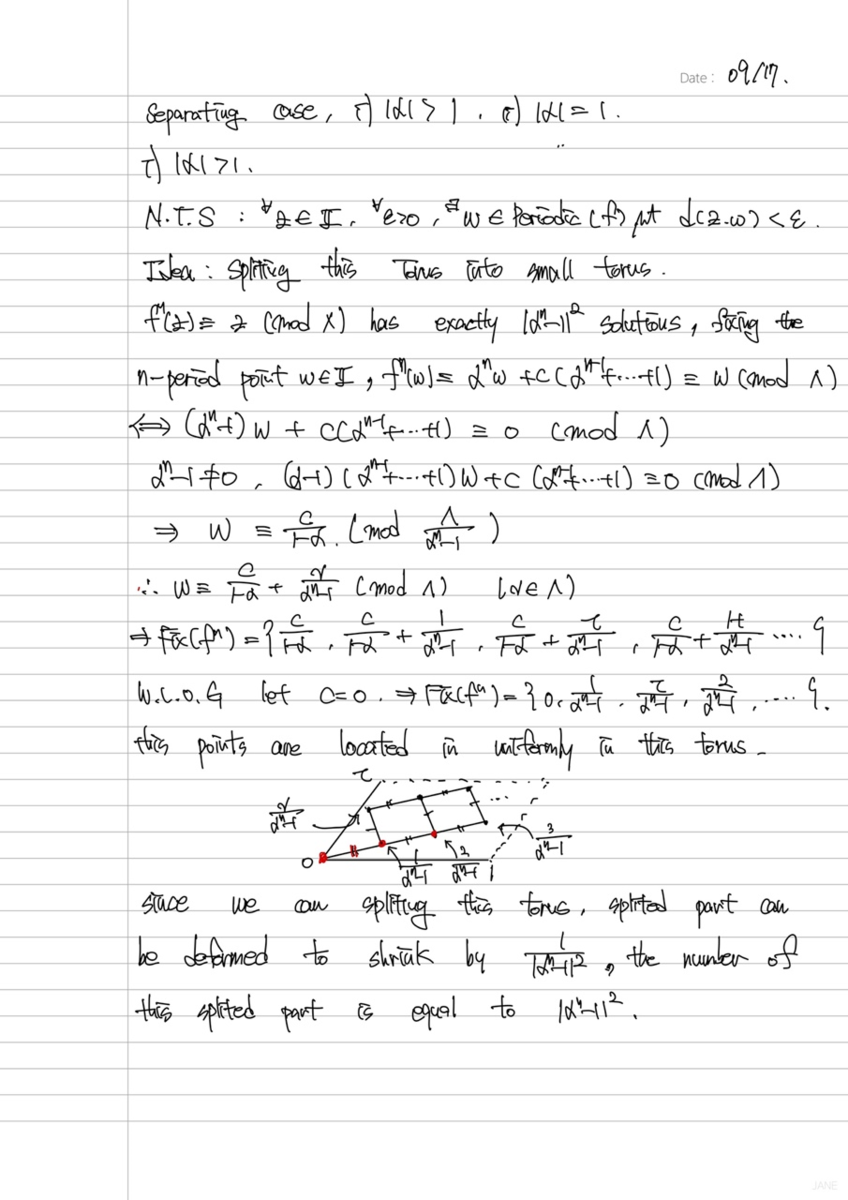 Date : 09/17.
Separating case, i) |α| > 1 , ii) |α| = 1.
i) |α| > 1.
N.T.S : ∀z ∈ 𝕋, ∀ε>0, ∃w ∈ Periodic (f) st d(z.w) < ε.
Idea : Spliting this Torus into small torus.
fⁿ(z) ≡ z (mod Λ) has exactly |αⁿ-1|² solutions, fixing the
n-period point w ∈ 𝕋, fⁿ(w) ≡ αⁿw + C(αⁿ⁻¹+...+1) ≡ w (mod Λ)
⟺ (αⁿ-1) w + C(αⁿ⁻¹+...+1) ≡ 0 (mod Λ)
αⁿ-1 ≠ 0 , (α-1)(αⁿ⁻¹+...+1)w + C (αⁿ⁻¹+...+1) ≡ 0 (mod Λ)
⇒ w ≡ C/(1-α) . (mod Λ/(αⁿ-1) )
∴ w ≡ C/(1-α) + γ/(αⁿ-1) (mod Λ) (γ ∈ Λ)
⇒ Fix(fⁿ) = { C/(1-α) , C/(1-α) + 1/(αⁿ-1) , C/(1-α) + τ/(αⁿ-1) , C/(1-α) + (1+τ)/(αⁿ-1) .... }
W.L.O.G let C=0 . ⇒ Fix(fⁿ) = { 0, 1/(αⁿ-1) , τ/(αⁿ-1) , 2/(αⁿ-1) , .... }.
this points are located in uniformly in this torus.
τ
γ/(αⁿ-1) ...
3/(αⁿ-1)
0 1/(αⁿ-1) 2/(αⁿ-1) 1
since we can spliting this torus, splited part can
be deformed to shrink by 1/|αⁿ-1|² , the number of
this splited part is equal to |αⁿ-1|².
JANE